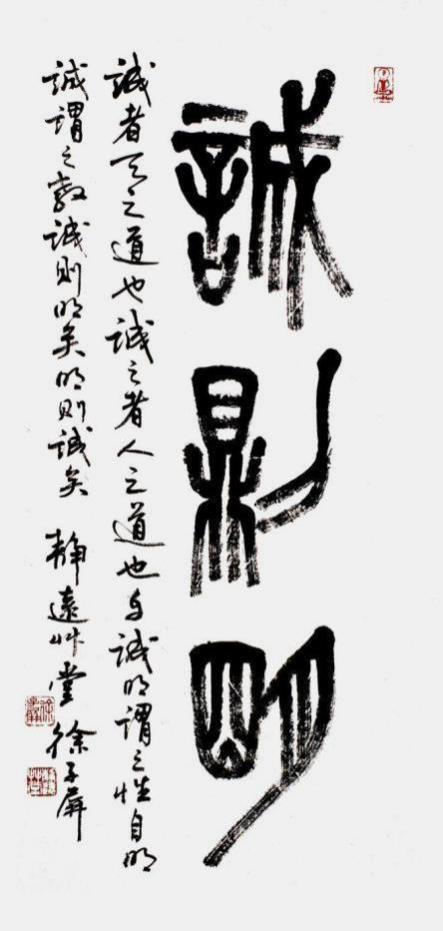 誠則明
誠者天之道也誠之者人之道也自誠明謂之性自明
誠謂之教誠則明矣明則誠矣 靜遠艸堂 徐子屏